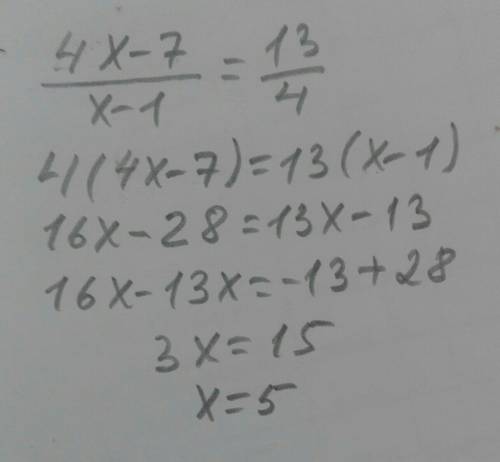 4x-7/x-1 = 13/4
4(4x-7)=13(x-1)
16x-28=13x-13
16x-13x=-13+28
3x=15
x=5